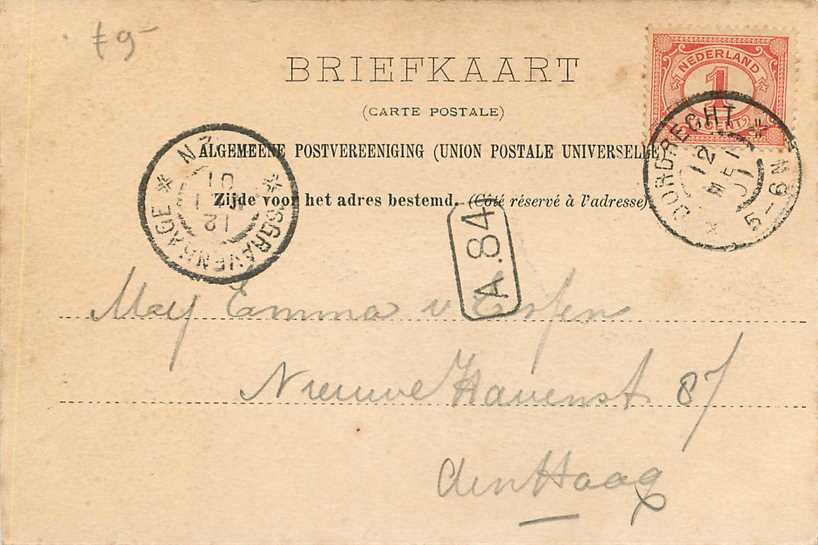 £9-
BRIEFKAART
(CARTE POSTALE)
ALGEMEENE POSTVEREENIGING (UNION POSTALE UNIVERSELLE)
Zijde voor het adres bestemd. (Côté réservé à l'adresse)
NEDERLAND
1
CENT
DORDRECHT
12 MEI 01
5-6N
'SGRAVENHAGE
12
01
A.84
Mej Emma v
Nieuwe Havenst 87
den Haag